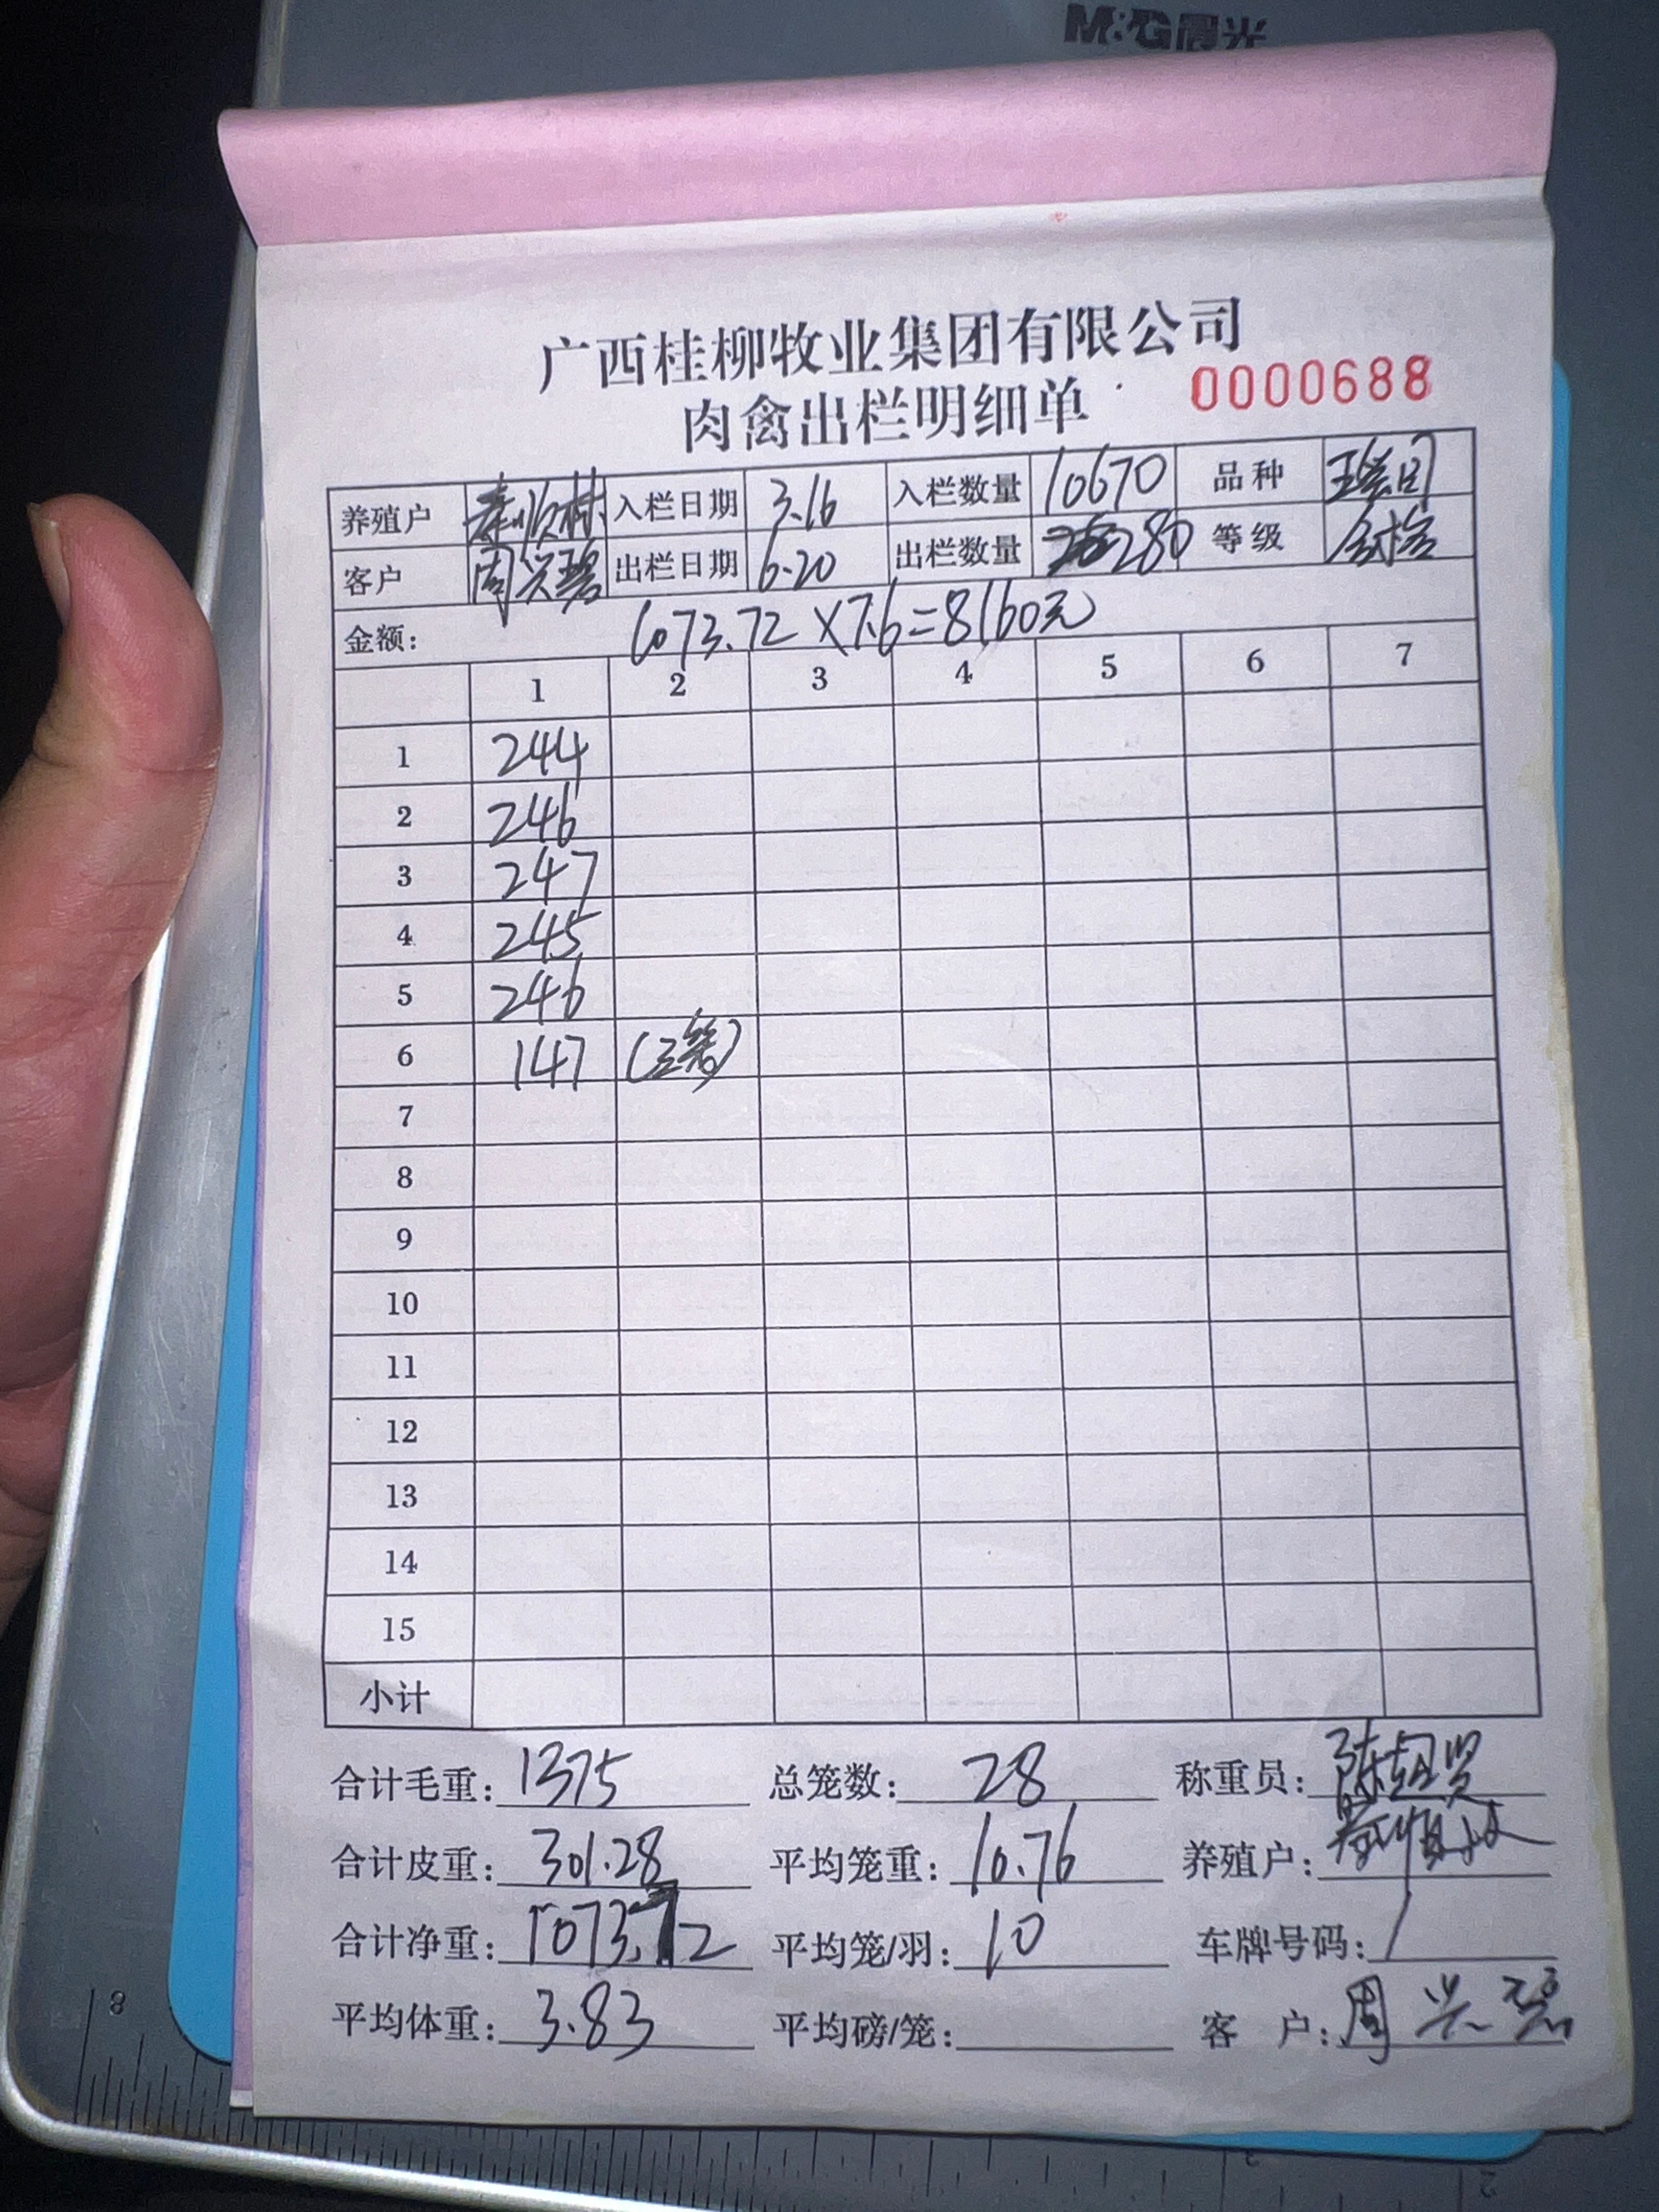 M&G晨光
广西桂柳牧业集团有限公司
肉禽出栏明细单 0000688
养殖户 入栏日期 3.16 入栏数量 10670 品种
客户 周兴碧 出栏日期 6.20 出栏数量 280 等级 合格
金额: 1073.72×7.6=8160元
1 2 3 4 5 6 7
1 244
2 246
3 247
4 245
5 246
6 147 (三笼)
7
8
9
10
11
12
13
14
15
小计
合计毛重: 1375 总笼数: 28 称重员: 陈超贤
合计皮重: 301.28 平均笼重: 10.76 养殖户:
合计净重: 1073.72 平均笼/羽: 10 车牌号码: /
平均体重: 3.83 平均磅/笼: 客 户: 周兴碧
8